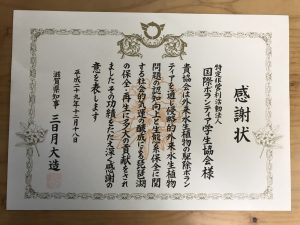 感謝状
特定非営利活動法人
国際ボランティア学生協会 様
貴協会は外来水生植物の駆除ボラン
ティアを通じ侵略的外来水生植物
問題の認知向上と生態系保全に関
する社会的気運の醸成による琵琶湖
の保全・再生に多大の貢献をされ
ましたその功績をたたえ深く感謝の
意を表します
平成二十九年十二月十八日
滋賀県知事 三日月大造